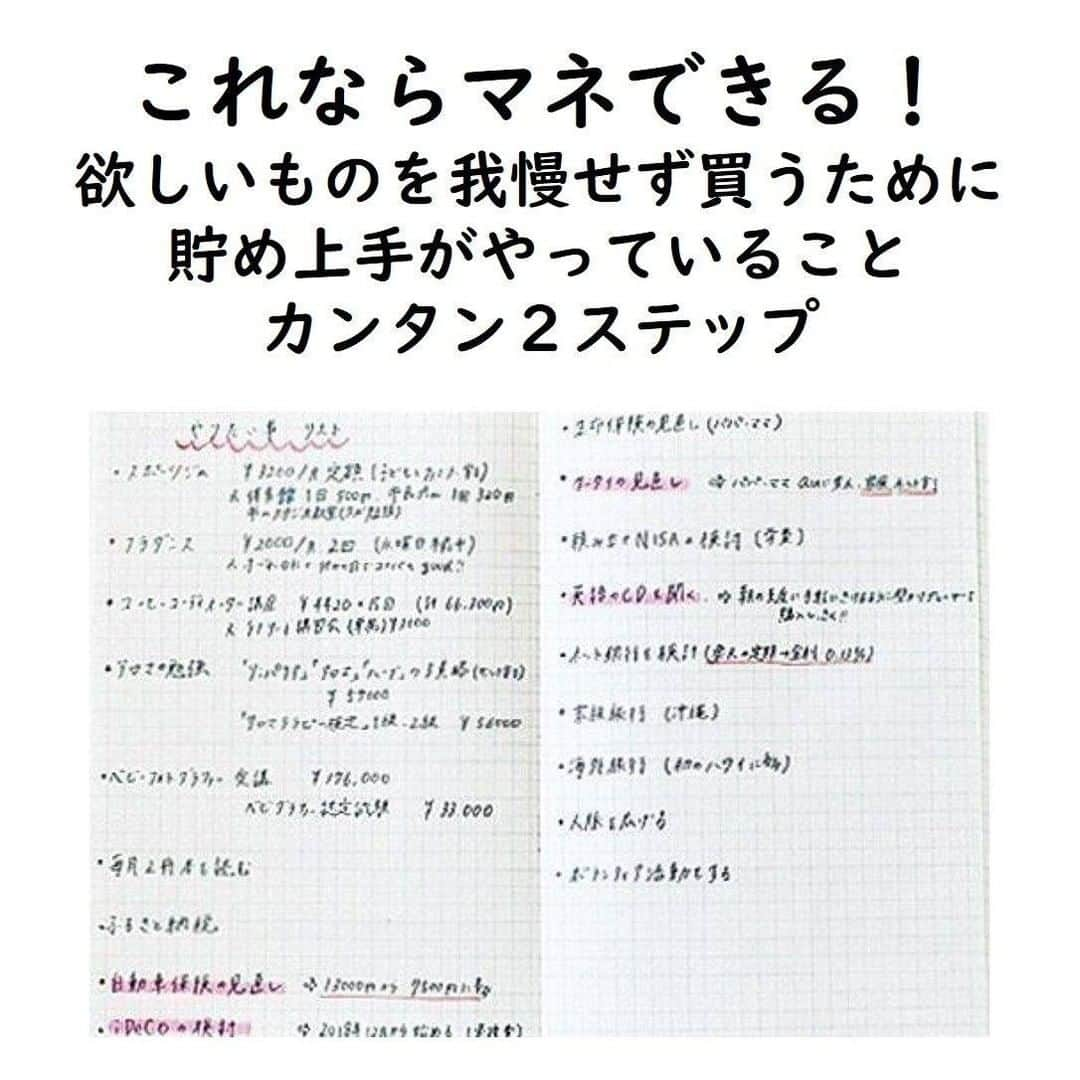 これならマネできる！
欲しいものを我慢せず買うために
貯め上手がやっていること
カンタン２ステップ
やりたい事リスト
・スポーツジム ￥3200/月定額
1日500円
・フラダンス ￥2000/月2回
・コーヒーコーディネーター講座 ￥4420×15回 (計66,300円)
・アロマの勉強
￥57000
「アロマテラピー検定」1級・2級 ￥56000
・ベビーフォトグラファー受講 ￥176,000
ベビーグラファー認定試験 ￥33,000
・毎月2冊本を読む
・ふるさと納税
・自動車保険の見直し ⇨ 13000円から9500円に
・iDeCoの検討 ⇨ 2018年12月から始める
・生命保険の見直し (パパ・ママ)
・ケータイの見直し ⇨ パパ・ママ
・積み立てNISAの検討
・英語のCDを聞く
・ネット銀行を検討
・家族旅行 (沖縄)
・海外旅行 (初のハワイに
・人脈を広げる
・ボランティア活動をする